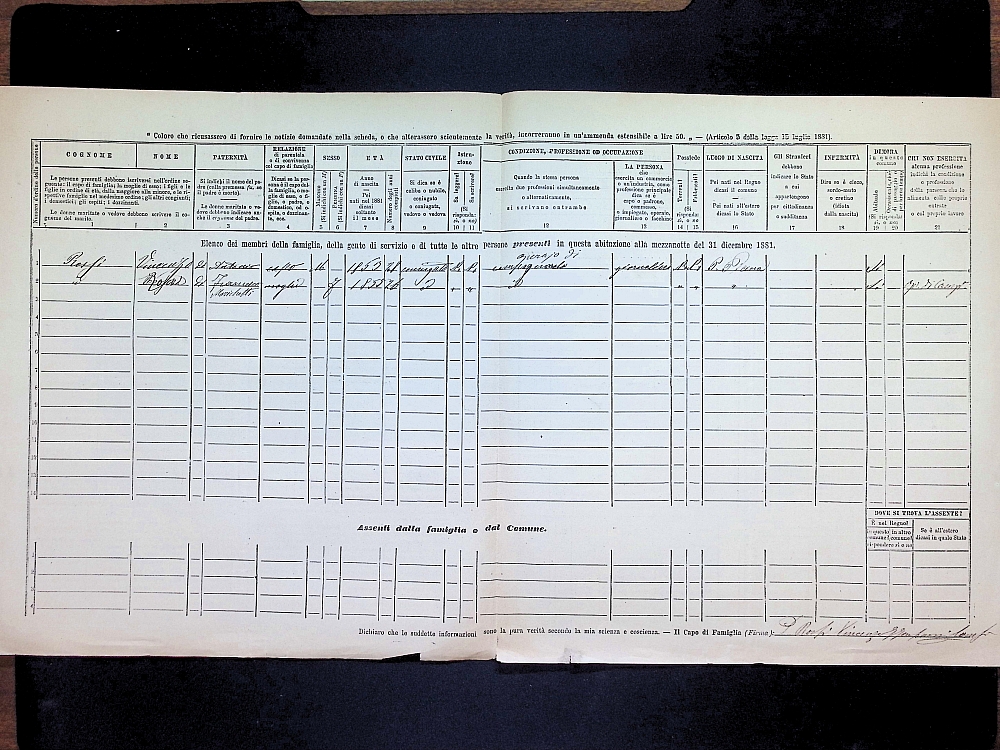 " Coloro che ricusassero di fornire le notizie domandate nella scheda, o che alterassero scientemente la verità, incorreranno in un'ammenda estensibile a lire 50. „ — (Articolo 3 della legge 15 luglio 1881).
Numero d'ordine delle persone
COGNOME NOME
Le persone presenti debbono iscriversi nell'ordine seguente: il capo di famiglia; la moglie di esso; i figli e le figlie in ordine di età, dalla maggiore alla minore, e le rispettive famiglie nel medesimo ordine; gli altri congiunti; i domestici; gli ospiti; i dozzinanti.
Le donne maritate o vedove debbono scrivere il cognome del marito.
PATERNITÀ
Si indichi il nome del padre (colla premessa fu, se il padre è morto).
Le donne maritate o vedove debbono indicare anche il cognome del padre.
RELAZIONE
di parentela
o di convivenza
col capo di famiglia
Dicasi se la persona è il capo di famiglia, o sposa, o figlio, o padre, o domestico, od ospite, o dozzinante, ecc.
SESSO
Maschio (Si indichi con M)
Femmina (Si indichi con F)
ETÀ
Anno
di nascita
Pei
nati nel 1881
dicasi
soltanto
il mese
Numero degli anni compiti
STATO CIVILE
Si dica se è
celibe o nubile,
coniugato
o coniugata,
vedovo o vedova
Istruzione
Sa leggere?
Sa scrivere?
(Si risponda: sì, o no)
CONDIZIONE, PROFESSIONE OD OCCUPAZIONE
Quando la stessa persona
esercita due professioni simultaneamente
o alternativamente,
si scrivano entrambe
LA PERSONA
che
esercita un commercio
o un'industria, come
professione principale
dica se è
capo o padrone,
commesso,
o impiegato, operaio,
giornaliero o facchino
Possiede
Terreni?
Fabbricati?
(Si risponda: sì, o no)
LUOGO DI NASCITA
Pei nati nel Regno
dicasi il comune
Pei nati all'estero
dicasi lo Stato
Gli Stranieri
debbono
indicare lo Stato
a cui
appartengono
per cittadinanza
o sudditanza
INFERMITÀ
Dire se è cieco,
sordo-muto
o cretino
(idiota
dalla nascita)
DIMORA
in questo
comune
Abituale
CHI NON ESERCITA
alcuna professione
indichi la condizione
o professione
della persona che lo
alimenta collo proprie
entrate
o col proprio lavoro
1 2 3 4 5 6 7 8 9 10 11 12 13 14 15 16 17 18 19 20 21
Elenco dei membri della famiglia, della gente di servizio o di tutte le altre persone presenti in questa abitazione alla mezzanotte del 31 dicembre 1881.
operajo di
1 Rossi Vincenzo di Antonio capo M — 1853 28 coniugato giornaliero
2 " Rosa di Francesco moglie — F
3
4
5
6
7
8
9
10
11
12
13
14
DOVE SI TROVA L'ASSENTE?
È nel Regno?
in questo comune?
in altro comune?
(si risponda: sì o no)
Se è all'estero
dicasi in quale Stato
Assenti dalla famiglia o dal Comune.
1
2
3
4
Dichiaro che le suddette informazioni sono la pura verità secondo la mia scienza e coscienza. — Il Capo di Famiglia (Firma) Rossi Vincenzo